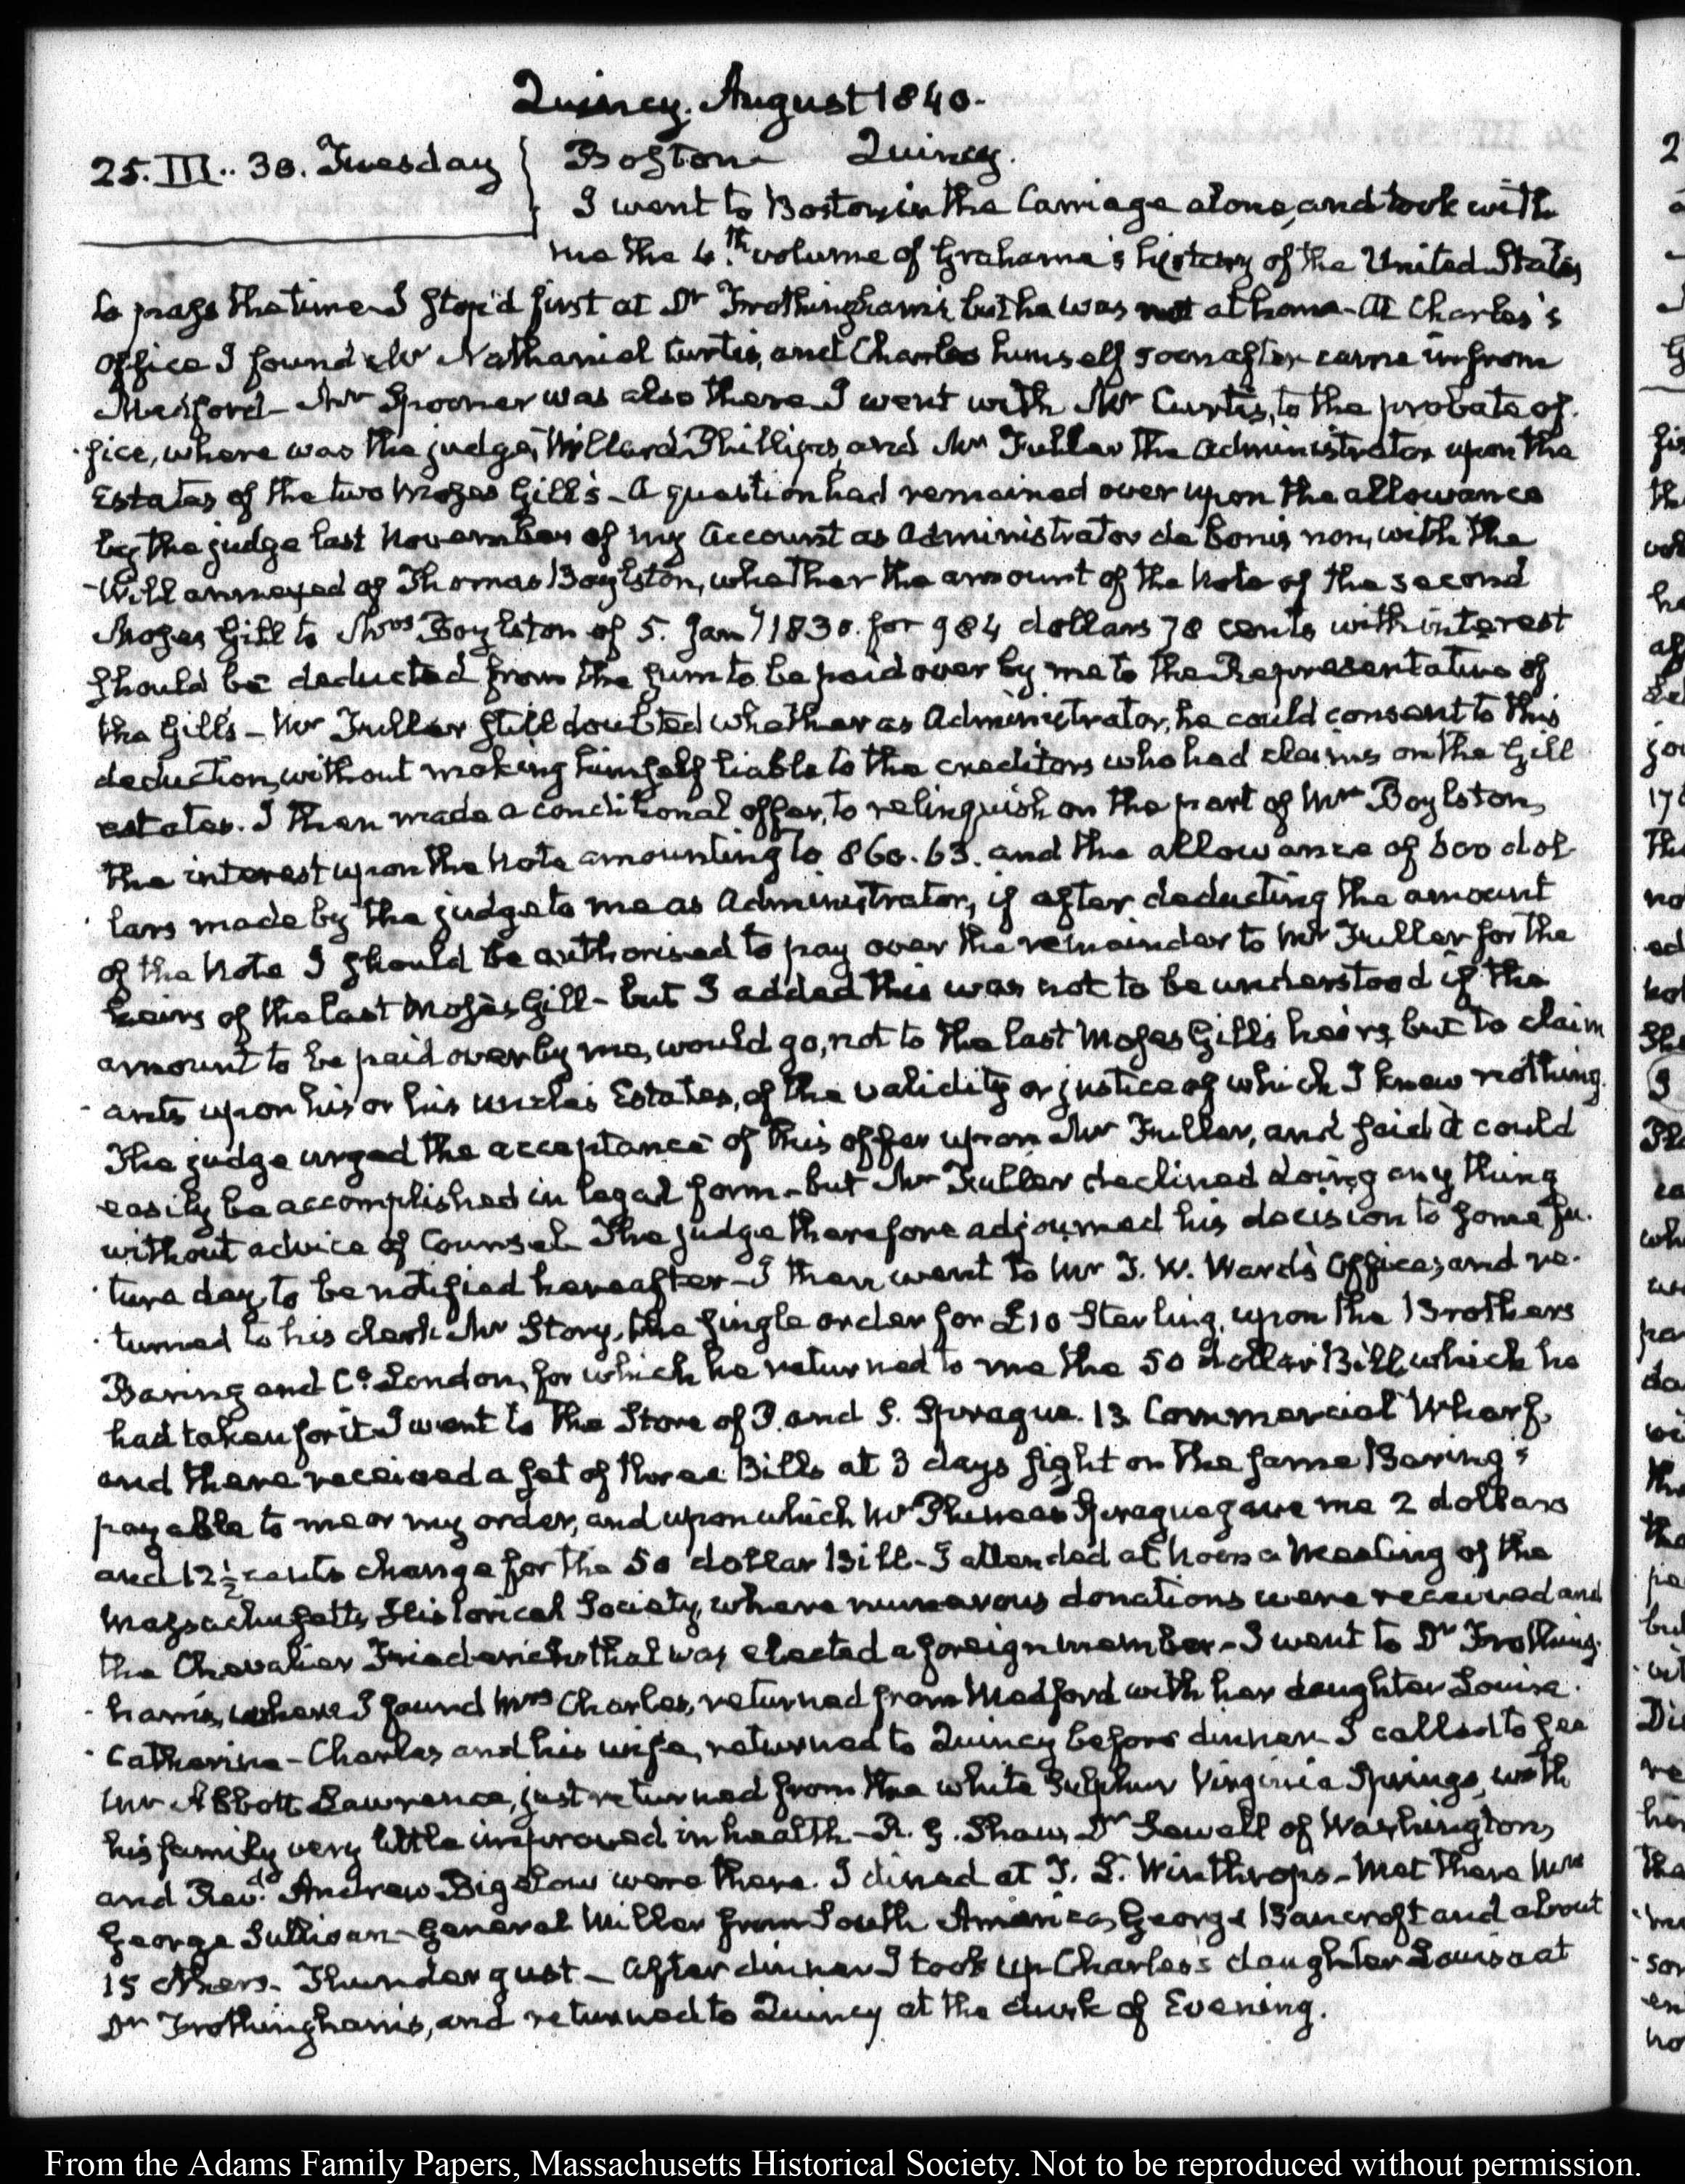 Quincy. August 1840.
25. III.. 30. Tuesday
Boston Quincy.
I went to Boston in the Carriage alone, and took with
me the 4th. volume of Grahame's history of the United States,
to pass the time. I stop'd first at Dr Frothingham's but he was not at home. At Charles's
office I found Mr Nathaniel Curtis, and Charles himself soon after came in from
Medford. Mr Spooner was also there. I went with Mr Curtis, to the probate of-
fice, where was the judge, Willard Phillips, and Mr Fuller the administrator upon the
Estates of the two Moses Gill's. A question had remained over upon the allowance
by the judge last November of my Account as Administrator de bonis non, with the
Will annexed of Thomas Boylston, whether the amount of the Note of the second
Moses Gill to Mrs Boylston of 5. Jany 1830. for 984 dollars 78 cents with interest
should be deducted from the sum to be paid over by me to the Representative of
the Gills – Mr Fuller still doubted whether as Administrator, he could consent to this
deduction, without making himself liable to the creditors who had claims on the Gill
estates. I then made a conditional offer, to relinquish on the part of Mrs Boylston,
the interest upon the Note amounting to 860.63. and the allowance of 600 dol-
lars made by the judge to me as Administrator, if after deducting the amount
of the Note I should be authorised to pay over the remainder to Mr Fuller for the
heirs of the last Moses Gill – but I added this was not to be understood if the
amount to be paid over by me, would go, not to the last Moses Gill's heirs, but to claim
ants upon his or his uncle's Estates, of the validity or justice of which I knew nothing.
The judge urged the acceptance of this offer upon Mr Fuller, and said it could
easily be accomplished in legal form – but Mr Fuller declined doing any thing
without advice of Counsel. The judge therefore adjourned his decision to some fu-
ture day, to be notified hereafter – I then went to Mr T. W. Ward's Office, and re-
turned to his clerk Mr Story, the single order for £10 Sterling, upon the Brothers
Baring and Co. London, for which he returned to me the 50 dollar Bill which he
had taken for it. I went to the Store of P. and S. Sprague. 13 Commercial Wharf,
and there received a set of three Bills at 3 days sight on the same Baring's
payable to me or my order, and upon which Mr Phineas Sprague gave me 2 dollars
and 12½ cents change for the 50 dollar Bill – I attended at noon a Meeting of the
Massachusetts Historical Society, where numerous donations were received and
the Chevalier Friederichsthal was elected a foreign member – I went to Dr Frothing-
ham's, where I found Mrs Charles, returned from Medford with her daughter Louisa
Catherine – Charles and his wife, returned to Quincy before dinner. I called to see
Mr Abbott Lawrence, just returned from the white Sulphur Virginia Springs, with
his family very little improved in health – R. G. Shaw, Dr Sewall of Washington,
and Revd. Andrew Bigelow were there. I dined at T. L. Winthrop's – Met there Mrs
George Sullivan – General Miller from South America, George Bancroft and about
15 others. Thunder gust – After dinner I took up Charles's daughter Louisa at
Dr Frothingham's, and returned to Quincy at the dusk of Evening.
2
17
From the Adams Family Papers, Massachusetts Historical Society. Not to be reproduced without permission.